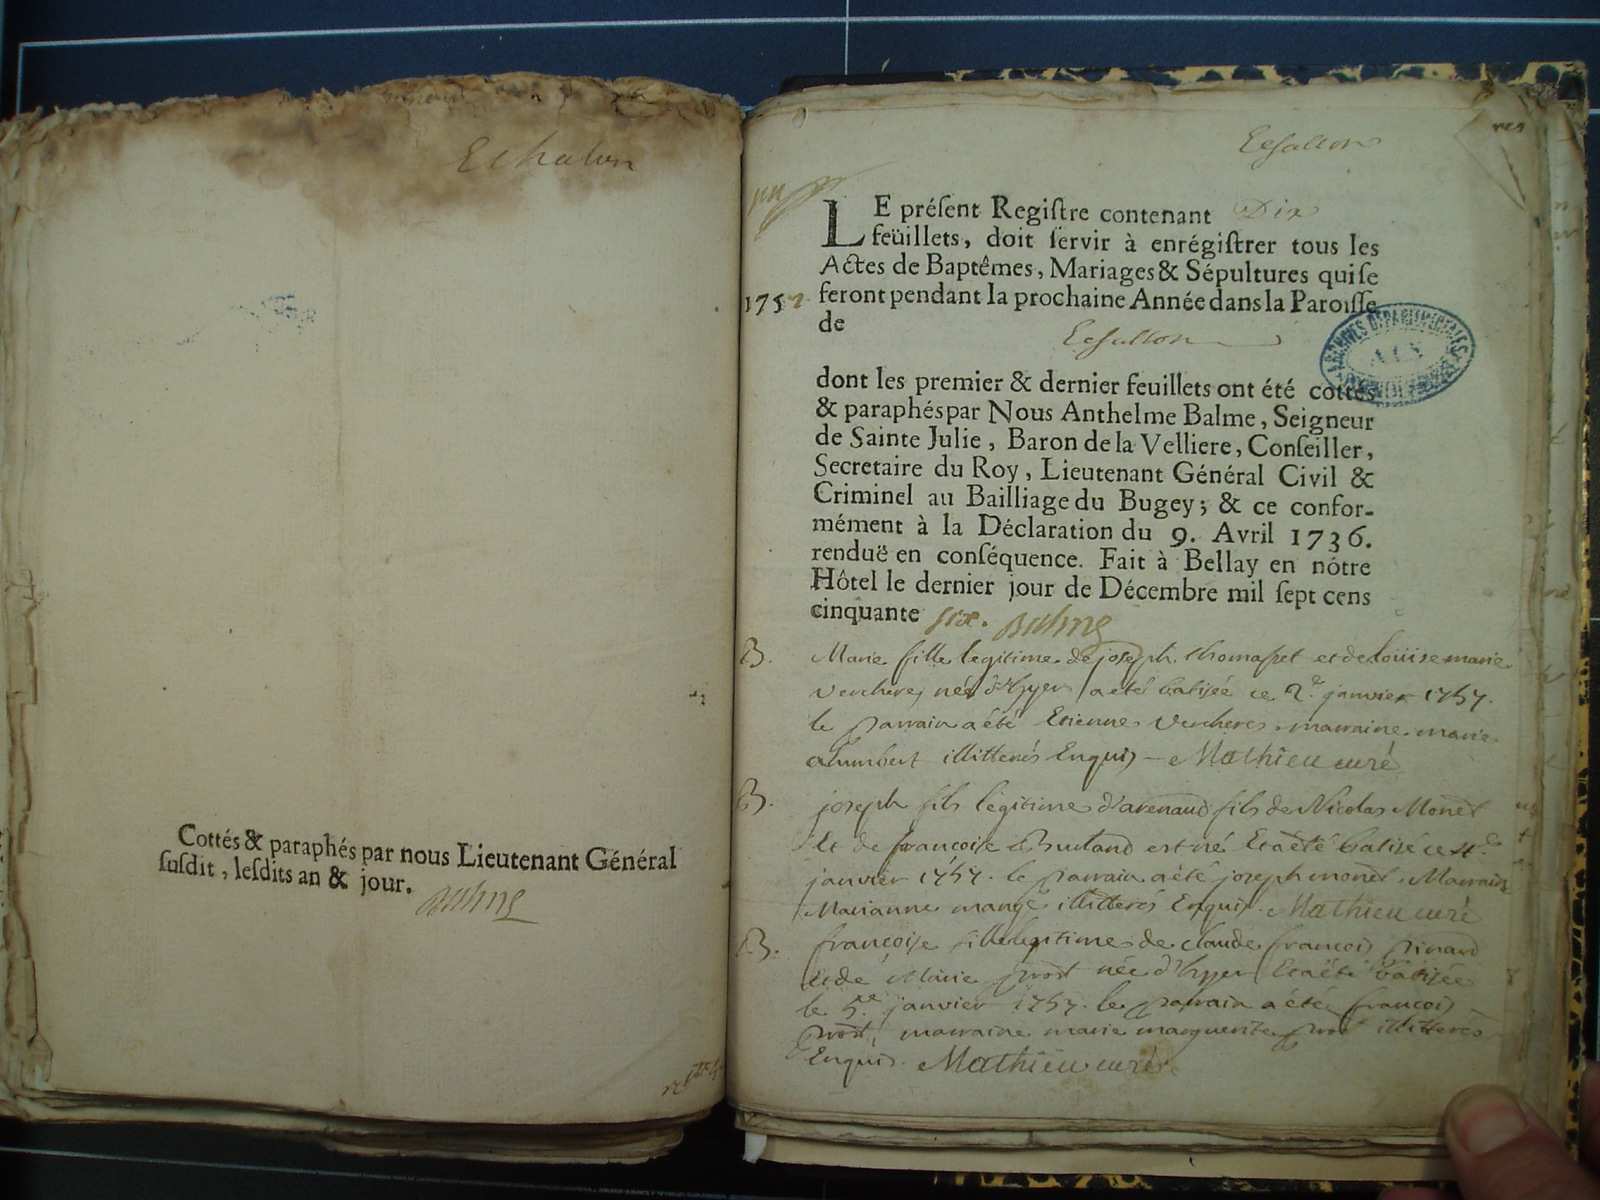 Echalon
Cottés & paraphés par nous Lieutenant Général
susdit, lesdits an & jour.
Balme
Echallon
LE présent Registre contenant Dix
feüillets, doit servir à enrégistrer tous les
Actes de Baptêmes, Mariages & Sépultures qui se
1757 feront pendant la prochaine Année dans la Paroisse
de
Echallon
dont les premier & dernier feuillets ont été cottés
& paraphés par Nous Anthelme Balme, Seigneur
de Sainte Julie, Baron de la Velliere, Conseiller,
Secretaire du Roy, Lieutenant Général Civil &
Criminel au Bailliage du Bugey; & ce confor-
mément à la Déclaration du 9. Avril 1736.
renduë en conséquence. Fait à Bellay en nôtre
Hôtel le dernier jour de Décembre mil sept cens
cinquante six. Balme
B. Marie fille legitime de joseph thomasset et de loüise marie
vercheres née d'hyer a eté batisée ce 2e janvier 1757.
le parrain a été Etienne vercheres. marraine. marie
humbert illitterés Enquis - Mathieu curé
B. joseph fils légitime d'arenaud fils de Nicolas Monet
Et de francoise est né Et a été batisé ce 4e
janvier 1757. le parrain a été joseph monet. Marraine
Marianne mange illitterés Enquis. Mathieu curé
B. françoise fille legitime de claude françois pinard
Et de Marie prost née d'hyer Et a été batisée
le 5e janvier 1757. le parrain a été françois
prost, marraine marie marguerite prost illitterés
Enquis. Mathieu curé
ARCHIVES DEPARTEMENTALES
AIN